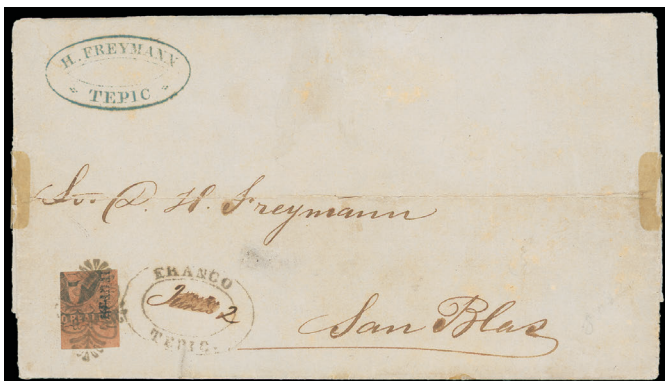 H. FREYMANN
TEPIC
Sr. D. H. Freymann
FRANCO
2
TEPIC.
San Blas